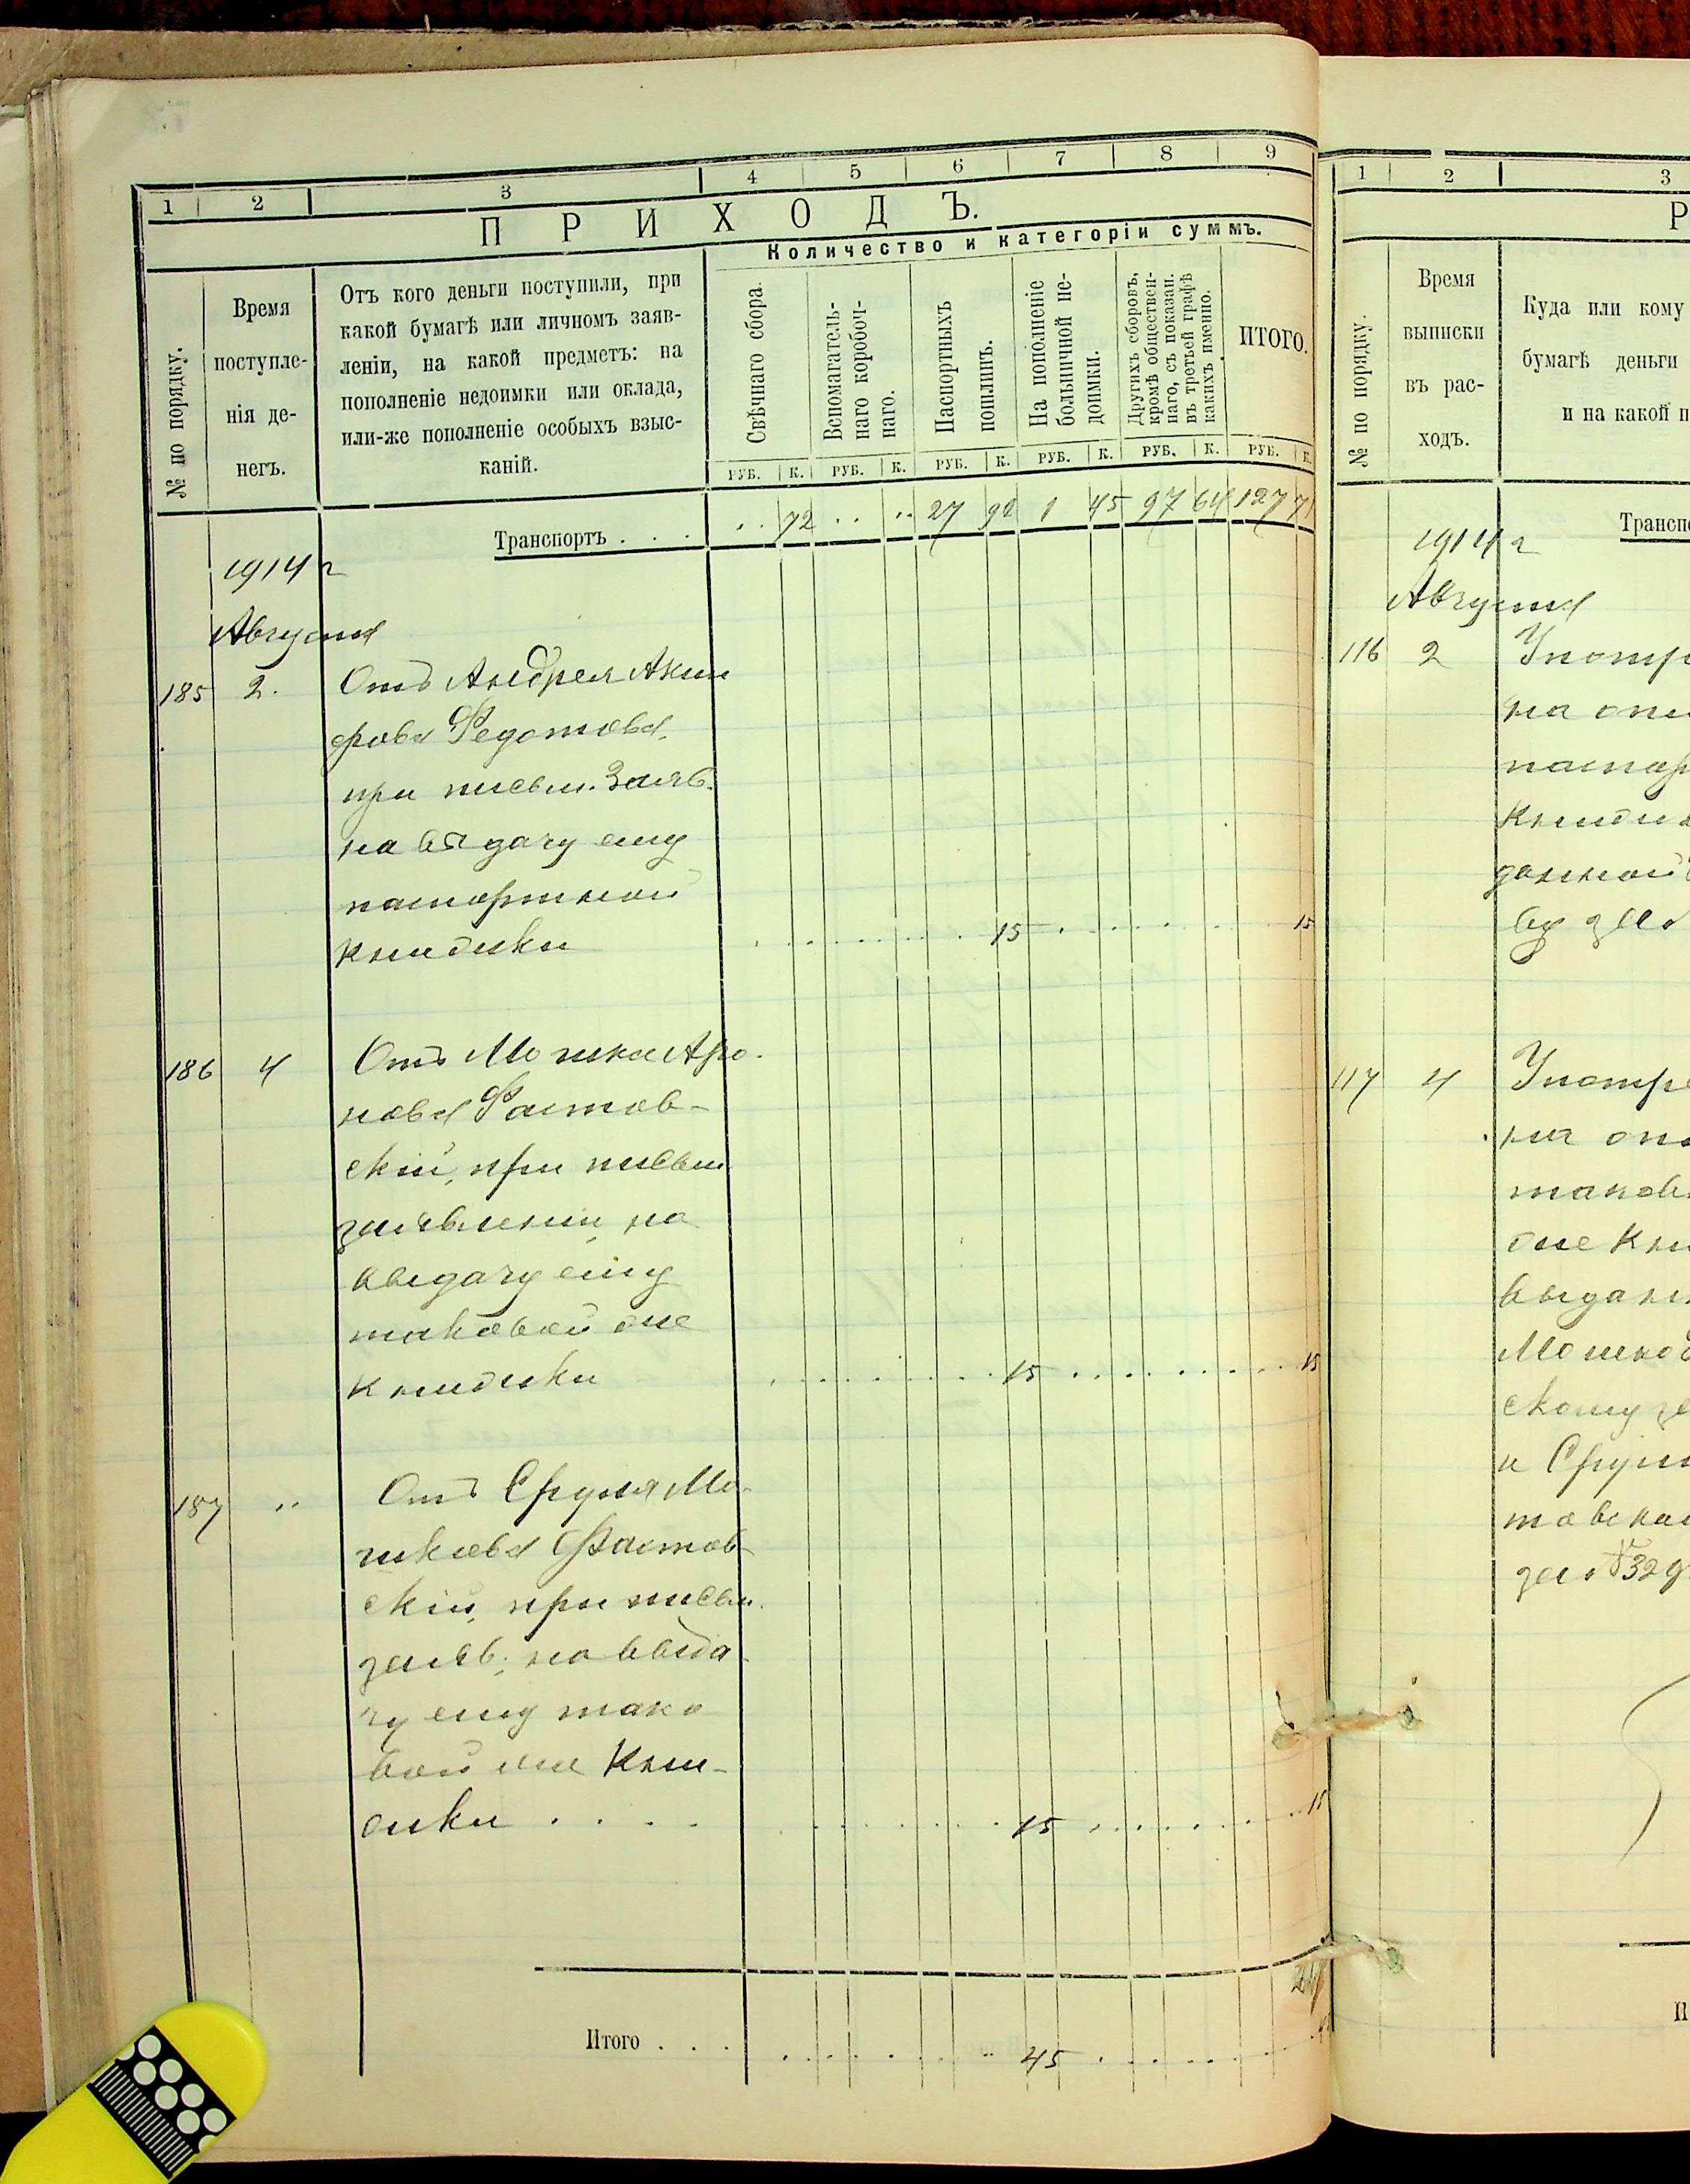 1 2 3 4 5 6 7 8 9
ПРИХОДЪ.
Количество и категоріи суммъ.
№ по порядку.
Время
поступле-
нія де-
негъ.
Отъ кого деньги поступили, при
какой бумагѣ или личномъ заяв-
леніи, на какой предметъ: на
пополненіе недоимки или оклада,
или-же пополненіе особыхъ взыс-
каній.
Свѣчнаго сбора.
Вспомагатель-
наго коробоч-
наго.
Паспортныхъ
пошлинъ.
На пополненіе
больничной не-
доимки.
Другихъ сборовъ,
кромѣ обществен-
наго, съ показан.
въ третьей графѣ
какихъ именно.
ИТОГО.
РУБ. К. РУБ. К. РУБ. К. РУБ. К. РУБ. К. РУБ. К.
Транспортъ . . . 72 27 90 1 45 97 64 127 71
1914 г
Августа
185 2. Отъ Андрея Аким
рова Федотова,
при письм. заяв.
на выдачу ему
паспортной
книжки 15 15
186 4 Отъ Мошка Аро-
нова Фастов-
скій, при письм.
заявленіи, на
выдачу ему
таковой же
книжки 15 15
187 " Отъ Сруля Мо-
шкова Фастов-
скій, при письм.
заяв., на выда-
чу ему тако
вой же Кни-
жки . . . . 15 15
Итого . . . 45
1 2 3
Р
№ по порядку.
Время
выписки
въ рас-
ходъ.
Куда или кому
бумагѣ деньги
и на какой п
Трансп
1914 г
Августа
116 2 Употре
на
паспор
книжк
данной
117 4 Употре
на
таков
же кн
выдан
Мошко
скому
и Срул
товском
за № 32
И